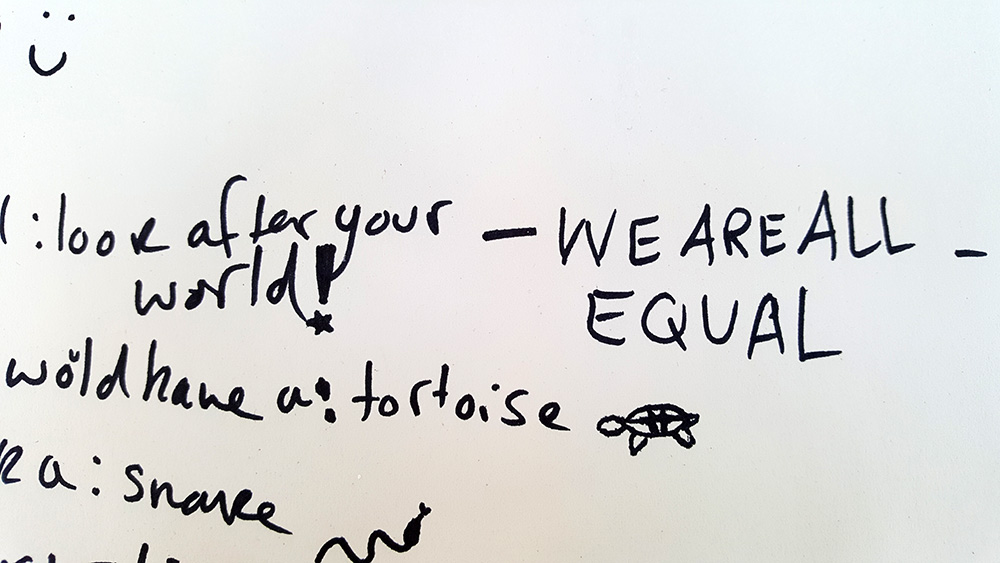 : look after your
world!
– WE ARE ALL –
EQUAL
wold have a: tortoise
a: snake